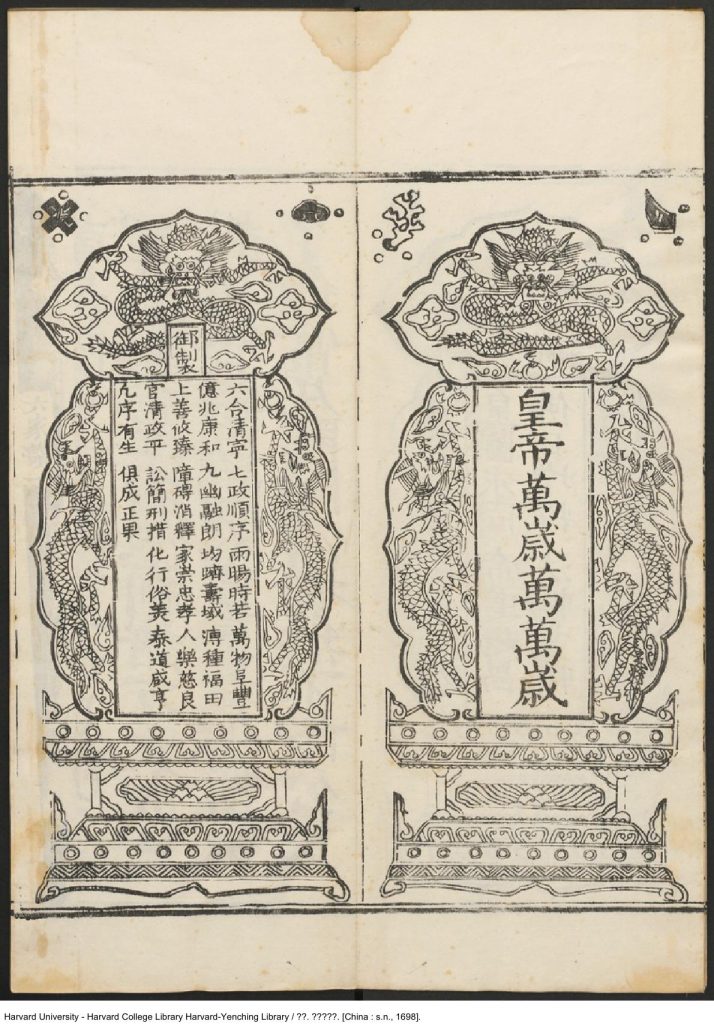 皇帝萬嵗萬萬嵗
御製
六合清寧 七政順序 雨暘時若 萬物阜豐
億兆康和 九幽融朗 均躋壽域 溥種福田
上善攸臻 障礙消釋 家崇忠孝 人樂慈良
官清政平 訟簡刑措 化行俗美 泰道咸亨
凢序有生 俱成正果
Harvard University - Harvard College Library Harvard-Yenching Library / ??. ?????. [China : s.n., 1698].